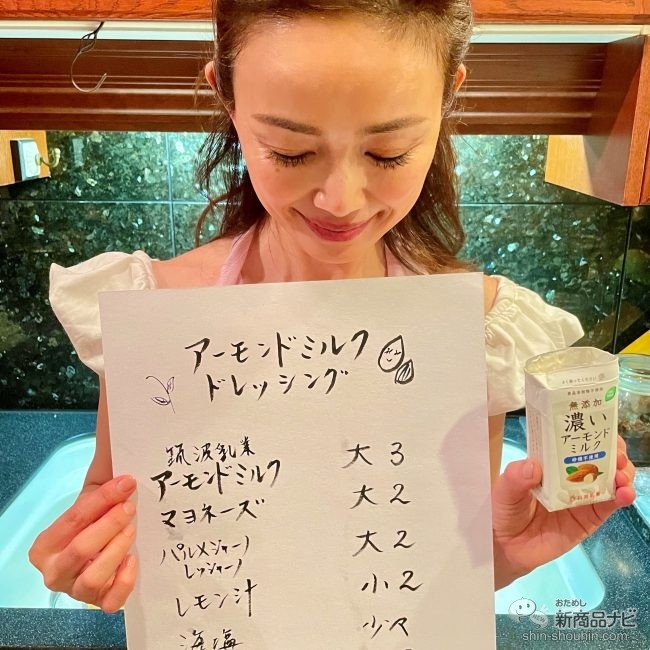 アーモンドミルク
ドレッシング
筑波乳業
アーモンドミルク 大3
マヨネーズ 大2
パルメジャーノ
レッジャーノ 大2
レモン汁 小2
海塩 少々
無添加
濃い
アーモンド
ミルク
砂糖不使用
おためし
新商品ナビ
shin-shouhin.com